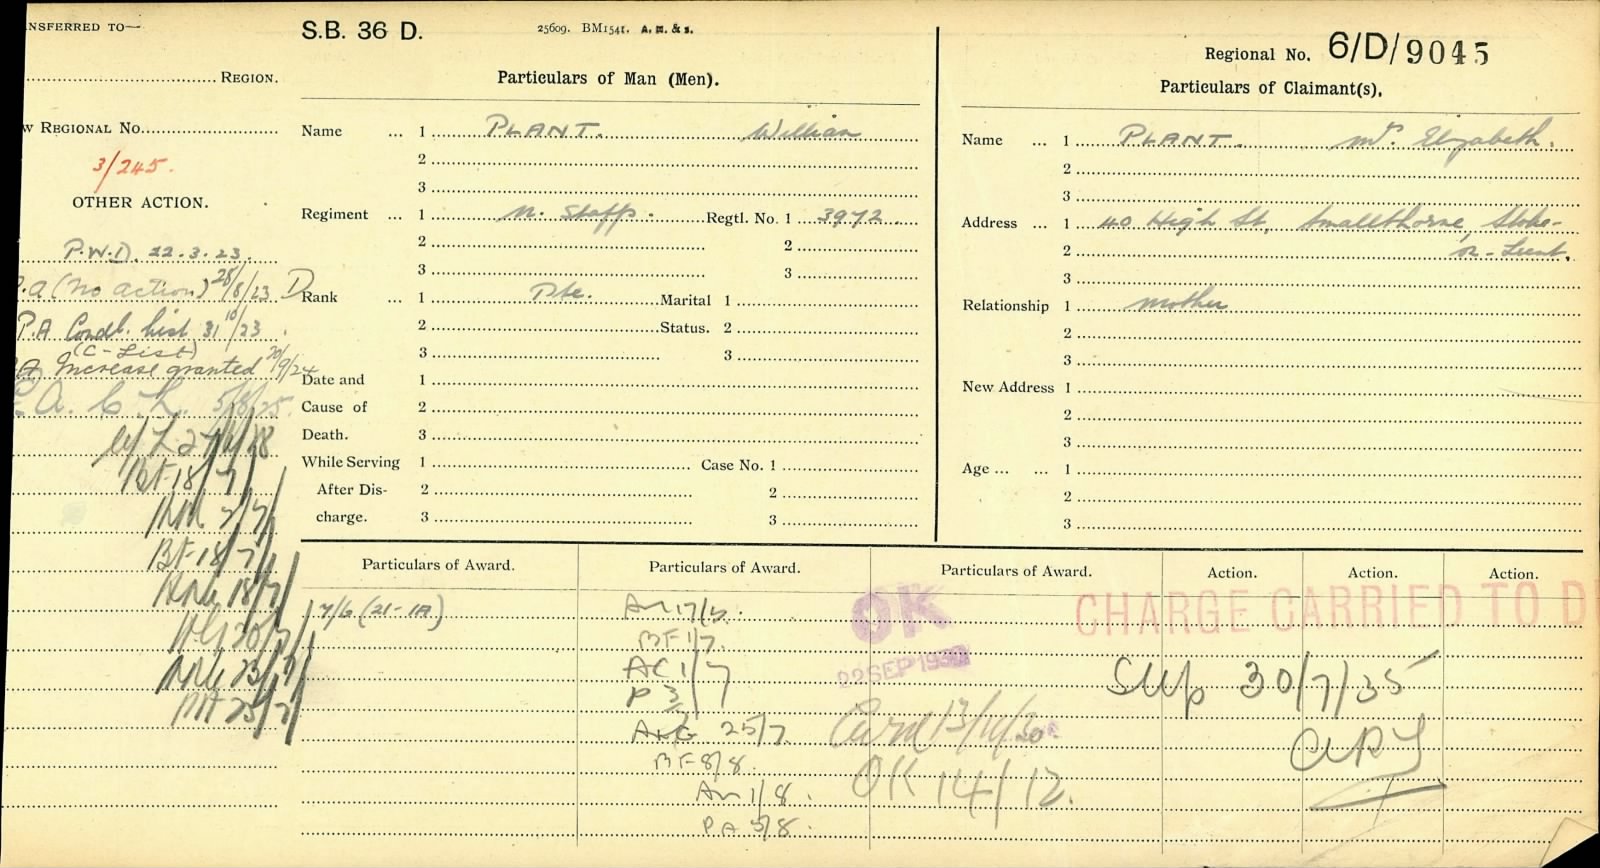 NSFERRED TO—
REGION.
W REGIONAL No.
3/245.
OTHER ACTION.
P.W.D. 22.3.23.
.A (No action) 28/8/23 D
P.A Condl. List 31 10/23.
(C-List)
A Increase granted 20/9/24
A. C. L. 5/8/25.
BF 18/7
BF 18/7
S.B. 36 D.
25609. BM1541. A.M.&S.
Particulars of Man (Men).
Name ... 1 PLANT. William
2
3
Regiment ... 1 N. Staffs. Regtl. No. 1 3972
2 2
3 3
Rank ... 1 Pte. Marital 1
2 Status. 2
3 3
Date and 1
Cause of 2
Death. 3
While Serving 1 Case No. 1
After Dis- 2 2
charge. 3 3
Regional No. 6/D/9045
Particulars of Claimant(s).
Name ... 1 PLANT. Mrs. Elizabeth.
2
3
Address ... 1 40 High St, Smallthorne, Stoke-
2 on-Trent.
3
Relationship 1 mother
2
3
New Address 1
2
3
Age ... ... 1
2
3
Particulars of Award. Particulars of Award. Particulars of Award. Action. Action. Action.
7/6 (21-1A)
BF 1/7.
AC 1/7
25/7
BF 8/8.
1/8.
PA 5/8.
OK
22 SEP 193
OK 14/12.
CHARGE CARRIED TO D
30/7/35